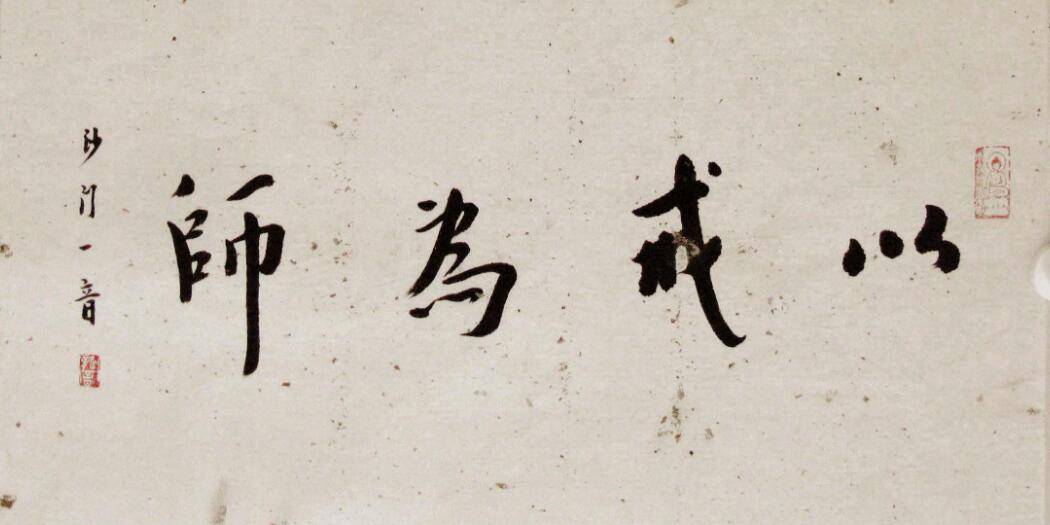 以戒為師
沙門一音